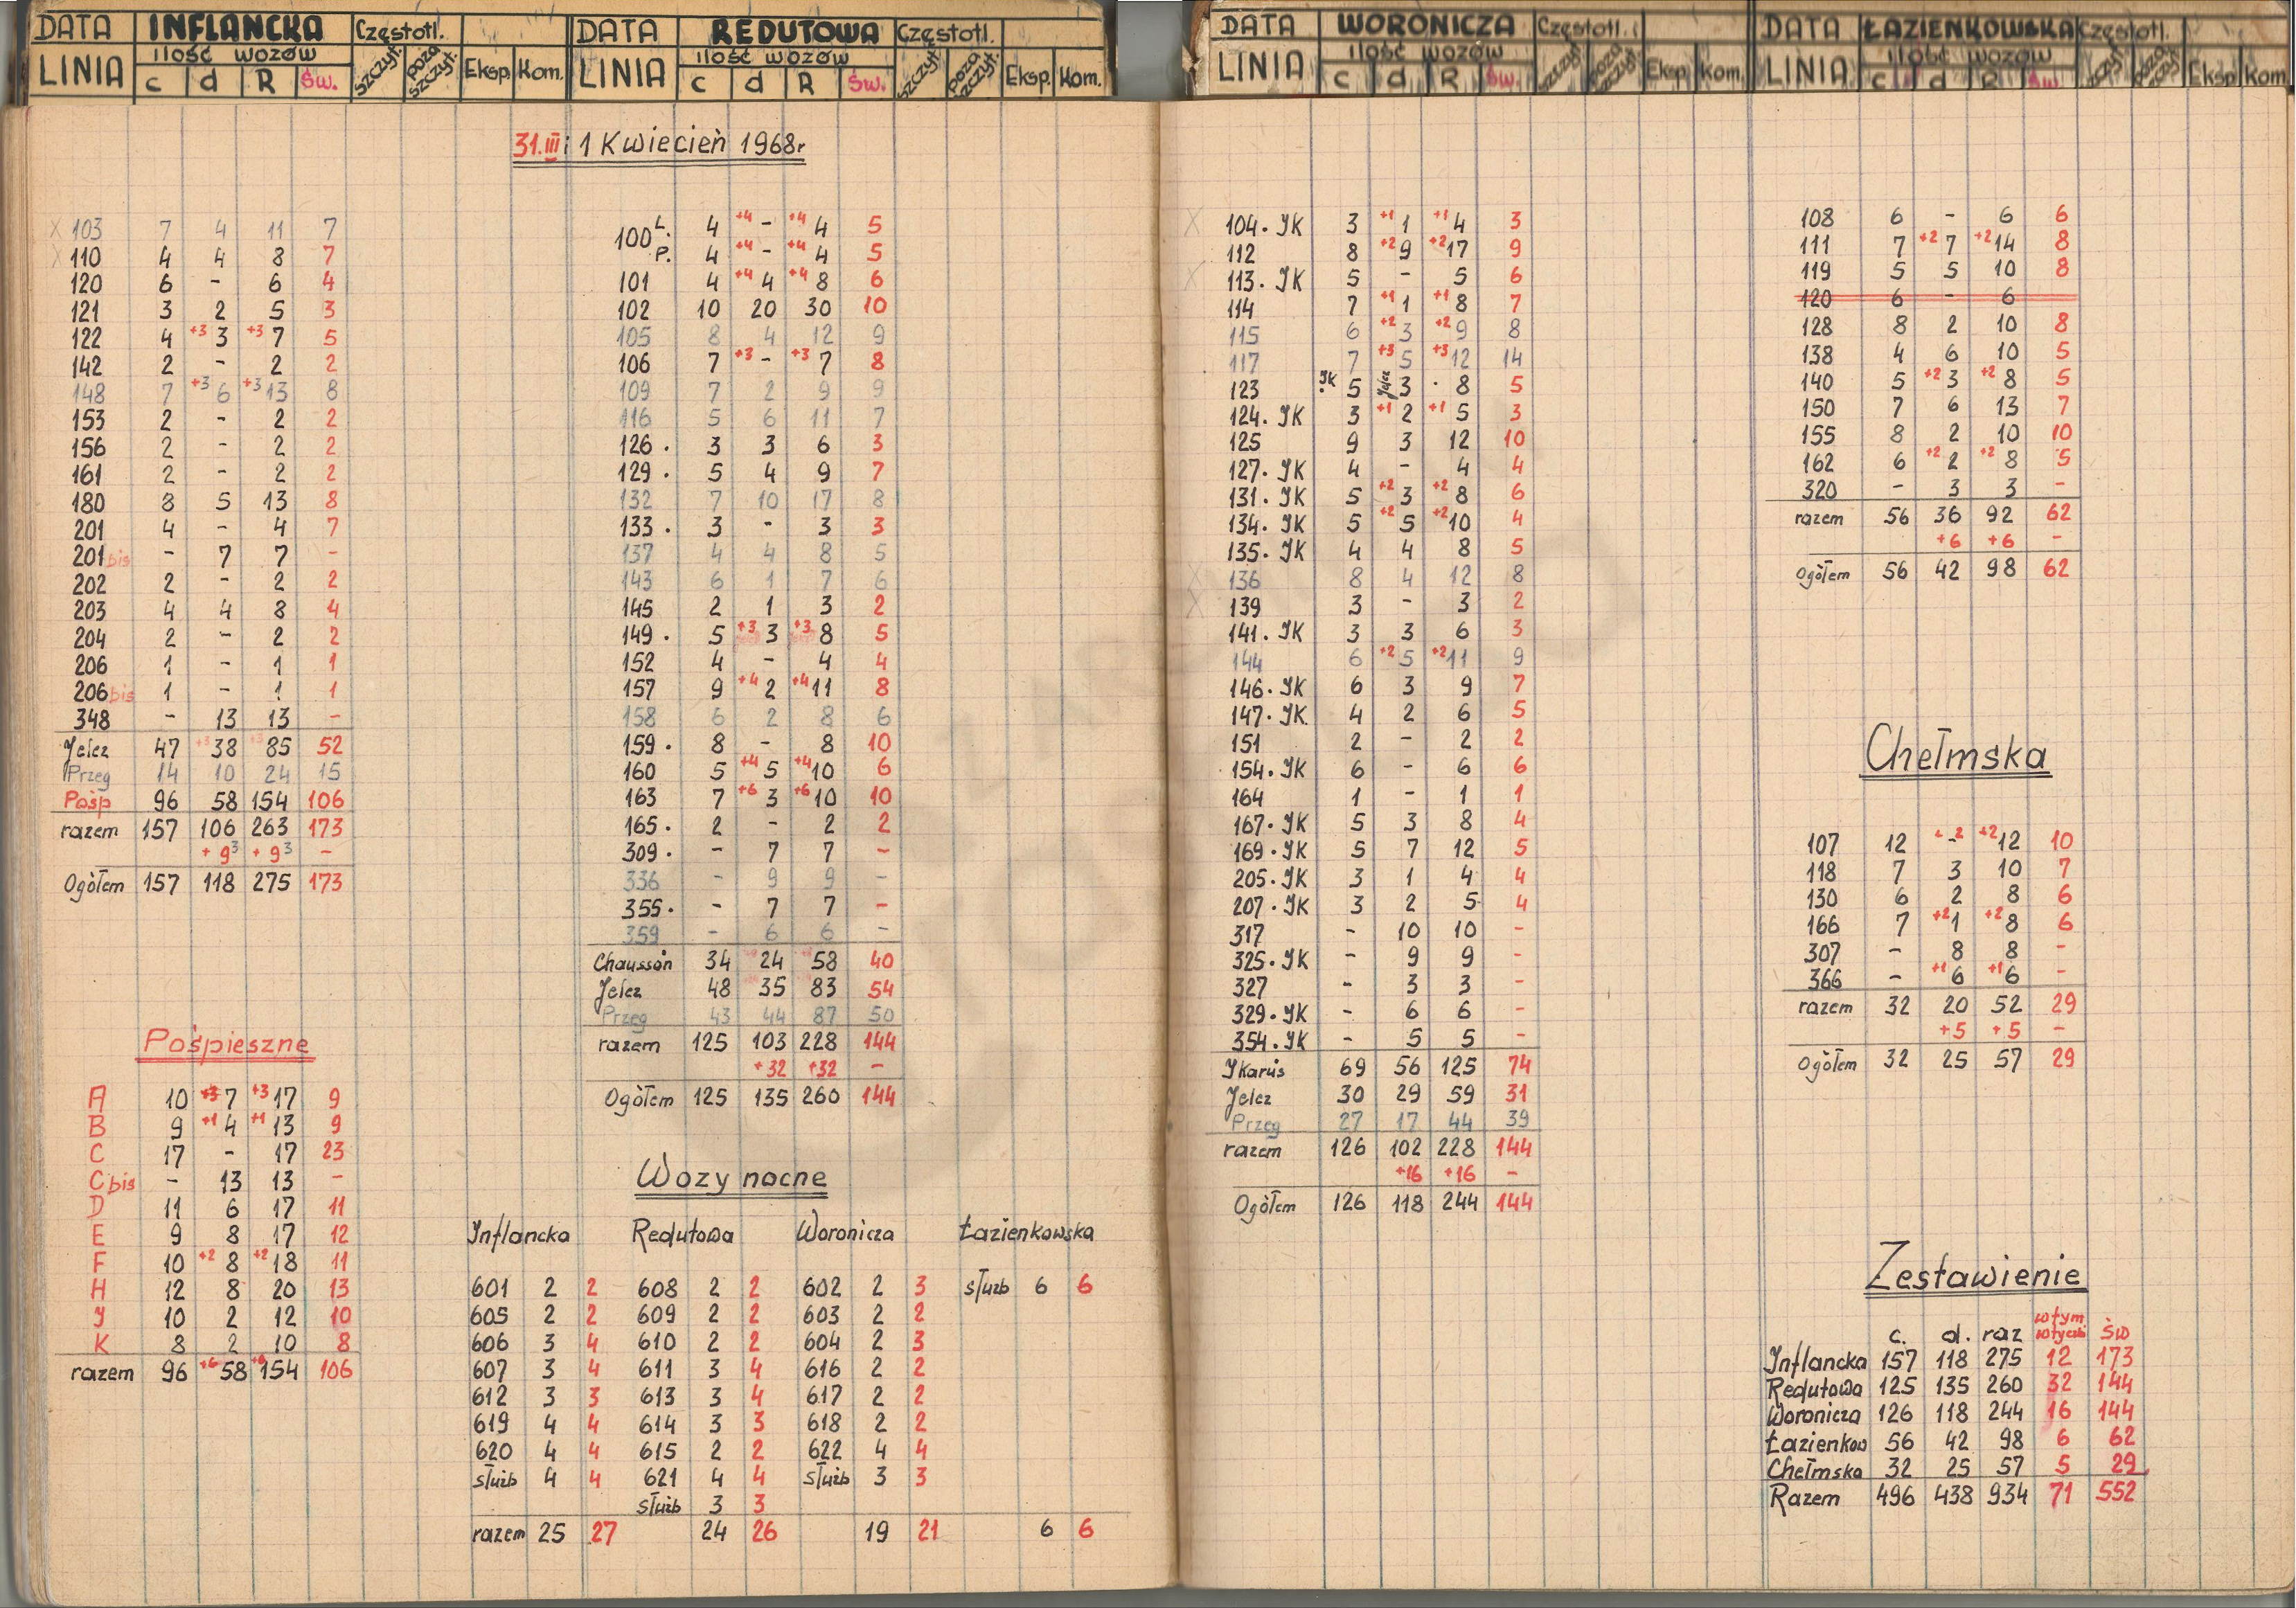 DATA INFLANCKA Częstotl.
ilość wozów
LINIA c d R Św. szczyt. poza szczyt. Eksp. Kom.
DATA REDUTOWA Częstotl.
ilość wozów
LINIA c d R Św. szczyt. poza szczyt. Eksp. Kom.
DATA WORONICZA Częstotl.
ilość wozów
LINIA c d R Św. szczyt. poza szczyt. Eksp. Kom.
DATA ŁAZIENKOWSKA Częstotl.
ilość wozów
LINIA c d R Św. szczyt. poza szczyt. Eksp. Kom.
31.III i 1 Kwiecień 1968r
x 103 7 4 11 7
x 110 4 4 8 7
120 6 - 6 4
121 3 2 5 3
122 4 +3 3 +3 7 5
142 2 - 2 2
148 7 +3 6 +3 13 8
153 2 - 2 2
156 2 - 2 2
161 2 - 2 2
180 8 5 13 8
201 4 - 4 7
201 bis - 7 7 -
202 2 - 2 2
203 4 4 8 4
204 2 - 2 2
206 1 - 1 1
206 bis 1 - 1 1
348 - 13 13 -
Jelcz 47 +3 38 +3 85 52
Przeg 14 10 24 15
Pośp 96 58 154 106
razem 157 106 263 173
+ 9 3 + 9 3 -
Ogółem 157 118 275 173
Pośpieszne
A 10 +3 7 +3 17 9
B 9 +1 4 +1 13 9
C 17 - 17 23
C bis - 13 13 -
D 11 6 17 11
E 9 8 17 12
F 10 +2 8 +2 18 11
H 12 8 20 13
J 10 2 12 10
K 8 2 10 8
razem 96 +6 58 +6 154 106
100 L. 4 +4 - +4 4 5
P. 4 +4 - +4 4 5
101 4 +4 4 +4 8 6
102 10 20 30 10
105 8 4 12 9
106 7 +3 - +3 7 8
109 7 2 9 9
116 5 6 11 7
126 . 3 3 6 3
129 . 5 4 9 7
132 7 10 17 8
133 . 3 - 3 3
137 4 4 8 5
143 6 1 7 6
145 2 1 3 2
149 . 5 +3 3 +3 8 5
152 4 - 4 4
157 9 +4 2 +4 11 8
158 6 2 8 6
159 . 8 - 8 10
160 5 +4 5 +4 10 6
163 7 +6 3 +6 10 10
165 . 2 - 2 2
309 . - 7 7 -
336 - 9 9 -
355 . - 7 7 -
359 - 6 6 -
Chausson 34 24 58 40
Jelcz 48 35 83 54
Przeg 43 44 87 50
razem 125 103 228 144
+32 +32 -
Ogółem 125 135 260 144
Wozy nocne
Inflancka Redutowa Woronicza Łazienkowska
601 2 2 608 2 2 602 2 3 służb 6 6
605 2 2 609 2 2 603 2 2
606 3 4 610 2 2 604 2 3
607 3 4 611 3 4 616 2 2
612 3 3 613 3 4 617 2 2
619 4 4 614 3 3 618 2 2
620 4 4 615 2 2 622 4 4
służb 4 4 621 4 4 służb 3 3
służb 3 3
razem 25 27 24 26 19 21 6 6
x 104. JK 3 +1 1 +1 4 3
112 8 +2 9 +2 17 9
x 113. JK 5 - 5 6
114 7 +1 1 +1 8 7
115 6 +2 3 +2 9 8
117 7 +3 5 +3 12 14
123 JK 5 Jelcz 3 . 8 5
124. JK 3 +1 2 +1 5 3
125 9 3 12 10
127. JK 4 - 4 4
131. JK 5 +2 3 +2 8 6
134. JK 5 +2 5 +2 10 4
135. JK 4 4 8 5
x 136 8 4 12 8
x 139 3 - 3 2
141. JK 3 3 6 3
144 6 +2 5 +2 11 9
146. JK 6 3 9 7
147. JK. 4 2 6 5
151 2 - 2 2
154. JK 6 - 6 6
164 1 - 1 1
167. JK 5 3 8 4
169. JK 5 7 12 5
205. JK 3 1 4 4
207. JK 3 2 5 4
317 - 10 10 -
325. JK - 9 9 -
327 - 3 3 -
329. JK - 6 6 -
354. JK - 5 5 -
Jkarus 69 56 125 74
Jelcz 30 29 59 31
Przeg 27 17 44 39
razem 126 102 228 144
+16 +16 -
Ogółem 126 118 244 144
108 6 - 6 6
111 7 +2 7 +2 14 8
119 5 5 10 8
120 6 - 6
128 8 2 10 8
138 4 6 10 5
140 5 +2 3 +2 8 5
150 7 6 13 7
155 8 2 10 10
162 6 +2 2 +2 8 5
320 - 3 3 -
razem 56 36 92 62
+6 +6 -
Ogółem 56 42 98 62
Chełmska
107 12 +2 - +2 12 10
118 7 3 10 7
130 6 2 8 6
166 7 +2 1 +2 8 6
307 - 8 8 -
366 - +1 6 +1 6 -
razem 32 20 52 29
+5 +5 -
Ogółem 32 25 57 29
Zestawienie
c. d. raz w tym wtyczki św
Inflancka 157 118 275 12 173
Redutowa 125 135 260 32 144
Woronicza 126 118 244 16 144
Łazienkow 56 42 98 6 62
Chełmska 32 25 57 5 29
Razem 496 438 934 71 552